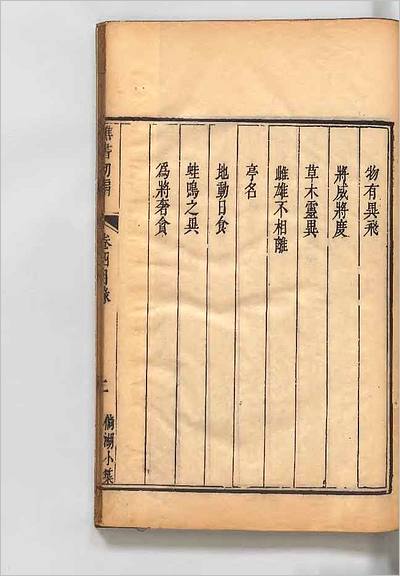 物有異飛
將威將慶
草木靈異
雌雄不相離
亭名
地動日食
蛙鳴之異
為將奢貪
樵書初編
卷四目錄
二
倘湖小築